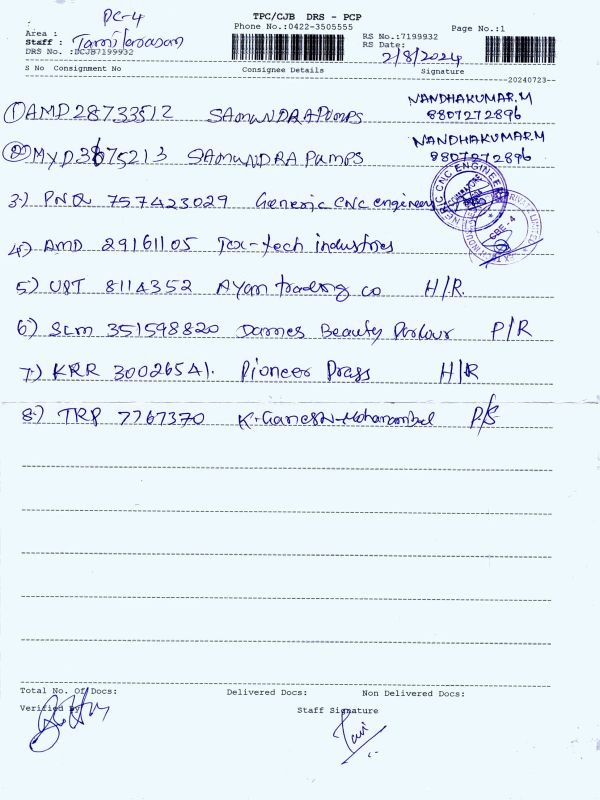 PC-4
TPC/CJB DRS - PCP
Phone No.:0422-3505555
Page No.:1
Area :
RS No.:7199932
Staff : Tamilarasan
RS Date:
2/8/2024
DRS No. :DCJB7199932
S No Consignment No Consignee Details Signature
20240723
1 AMD 28733512 SAMUNDRA PUMPS NANDHAKUMAR.M
8807272896
2 MYD 3875213 SAMUNDRA Pumps NANDHAKUMAR.M
8807272896
3.) PNQ 757423029 Generic CNC engineer
4) AMD 29161105 Tex-tech industries
CBE - 4
5) UBT 8114352 Ayan trading co H/R.
6) SLM 351598820 Dames Beauty Parlour P/R
7.) KRR 30026541. Pioneer Prass H/R
8.) TRP 7767370 K. Ganesh P/S
Total No. Of Docs: Delivered Docs: Non Delivered Docs:
Verified By
Staff Signature